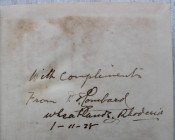 With Compliments
From E Lombard
Wheatlands, Rhodesia
1-11-28